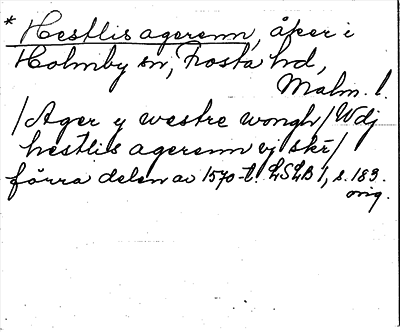 * Hestlis agerenn, åker i
Holmby sn, Frosta hd,
Malm. l.
/Ager y westre wongh/ Wdj
hestlis agerenn vj skr/
förra delen av 1570-t. LSLB 1, s. 183.
orig.